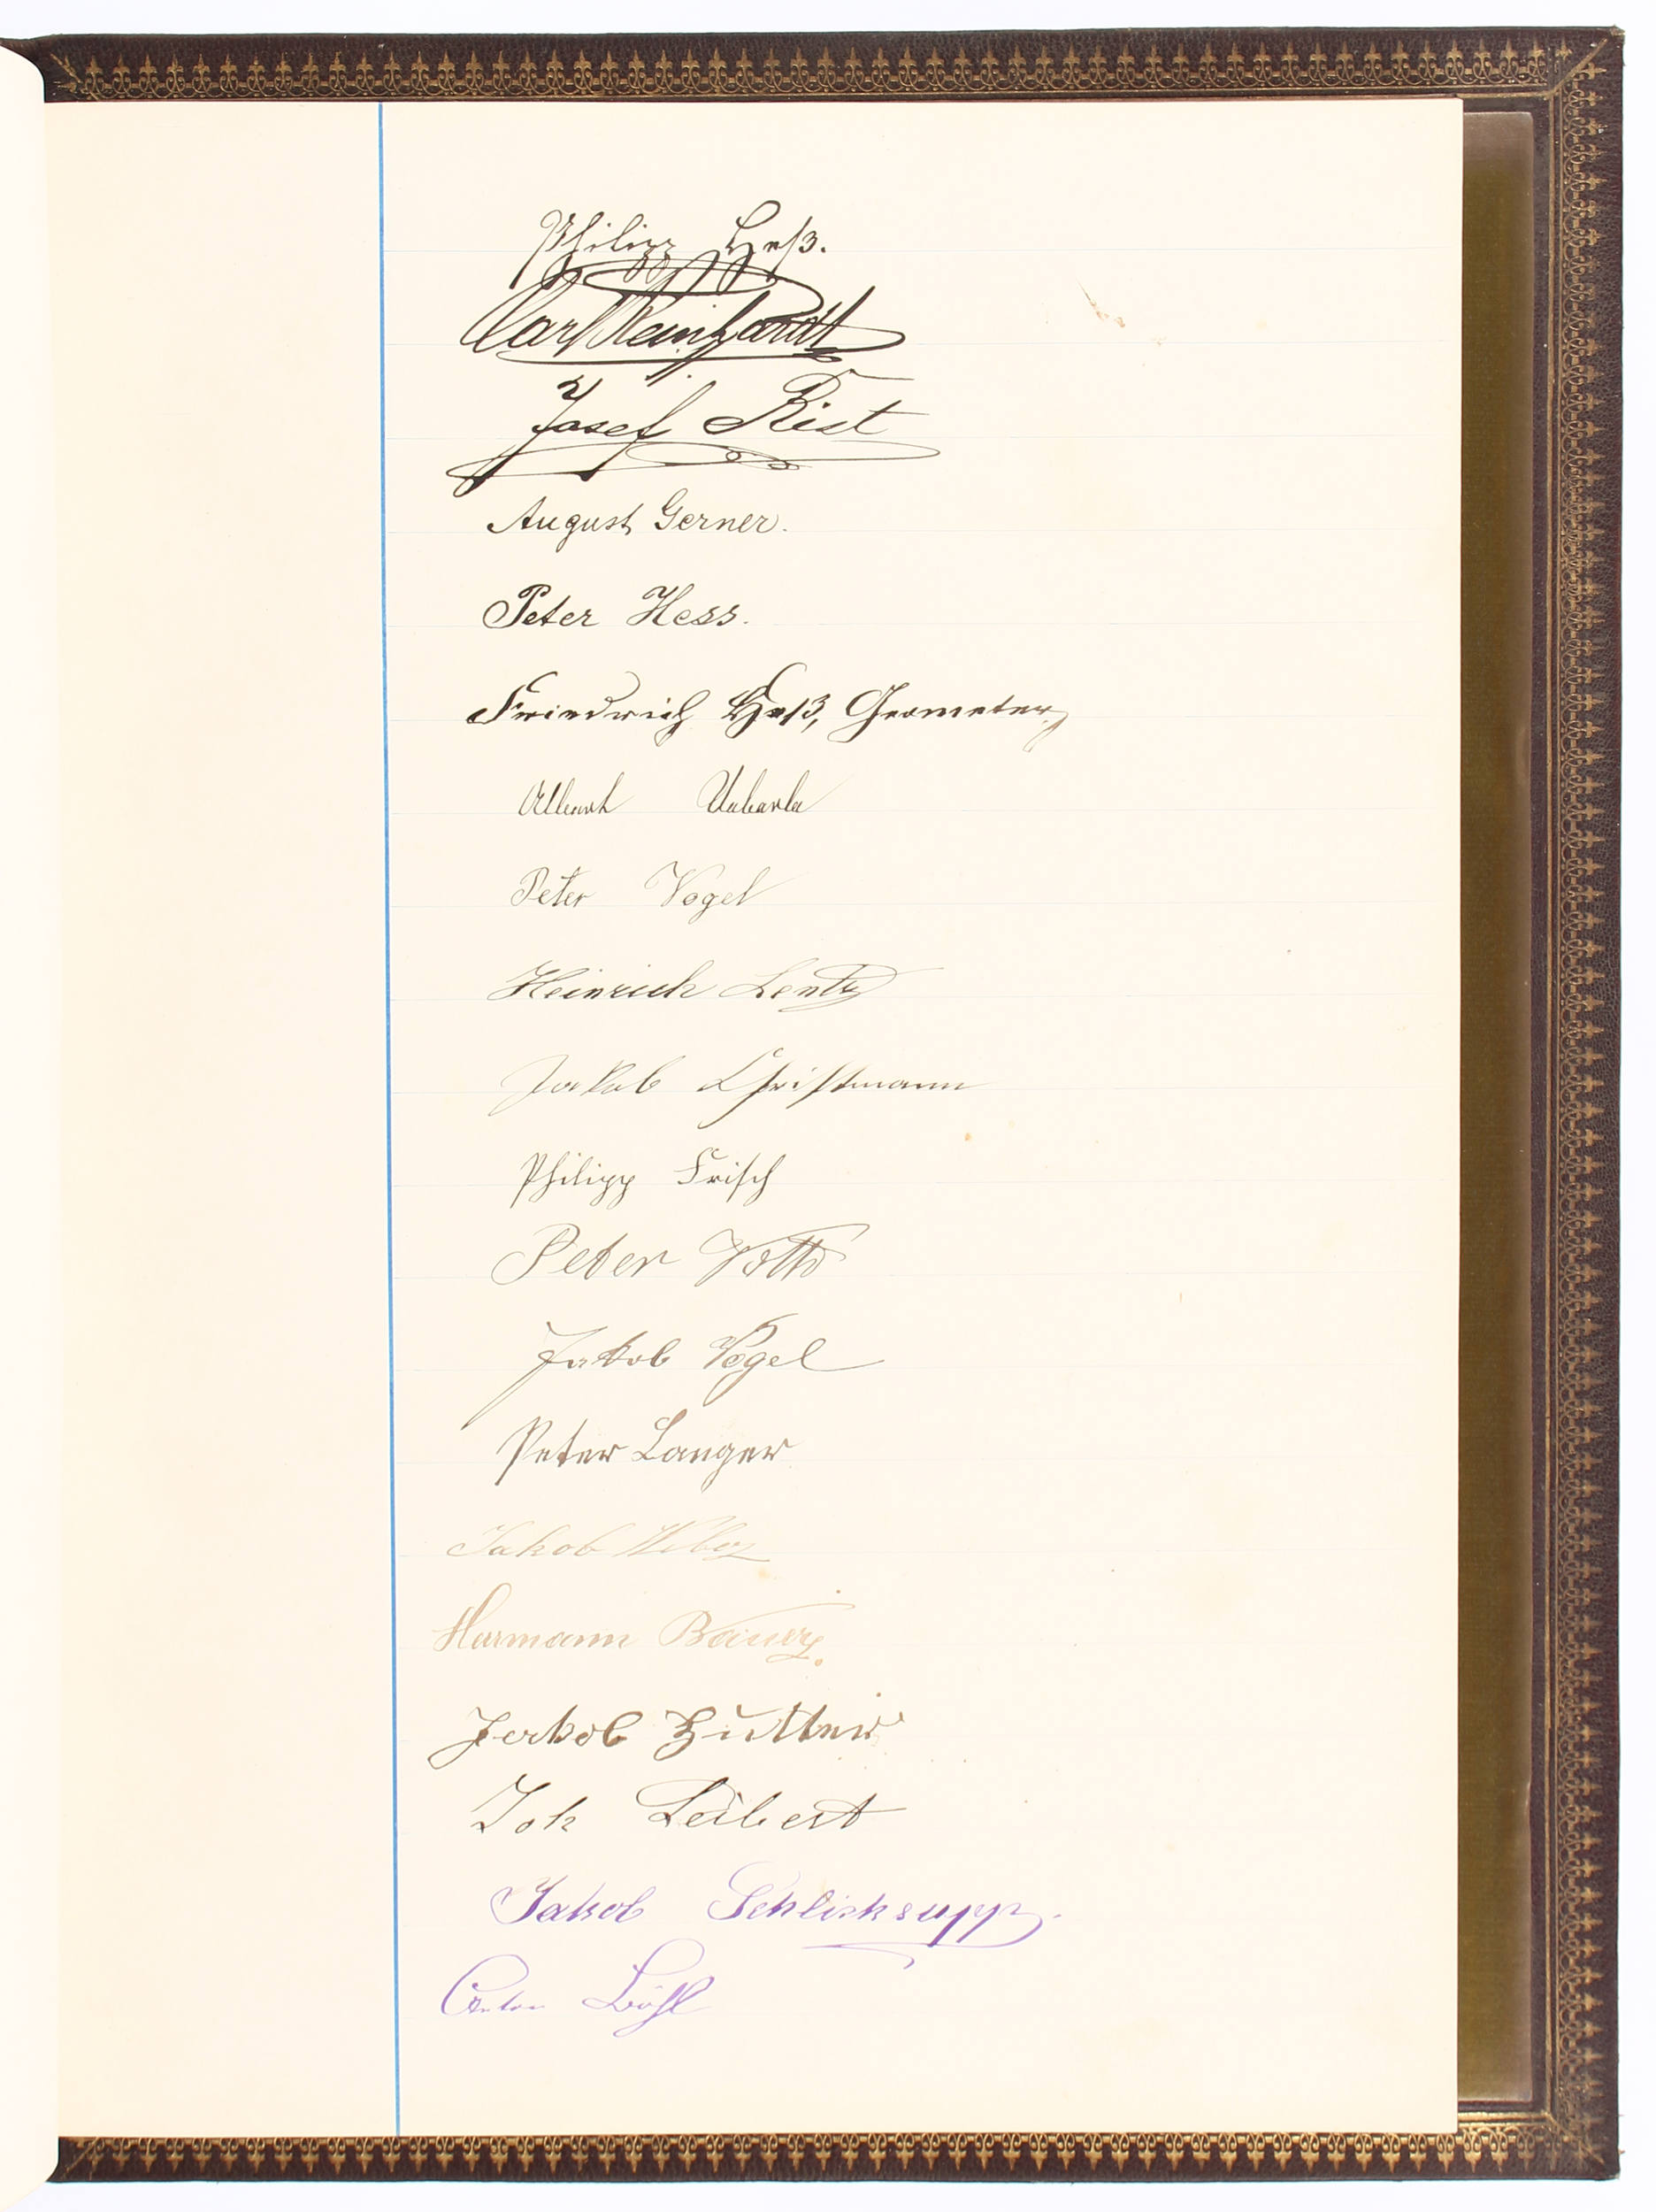 Philipp Heß.
Carl Reinhardt
Josef Rist
August Gerner.
Peter Hess.
Friedrich Heß, Geometer
Albert Ueberle
Peter Vogel
Heinrich Lentz
Jakob Christmann
Philipp Frisch
Peter Votto
Jakob Vogel
Peter Langer
Jakob Weber
Hermann Bauer.
Jakob Hütter
Joh Leibert
Jakob Schlicksupp.
Anton